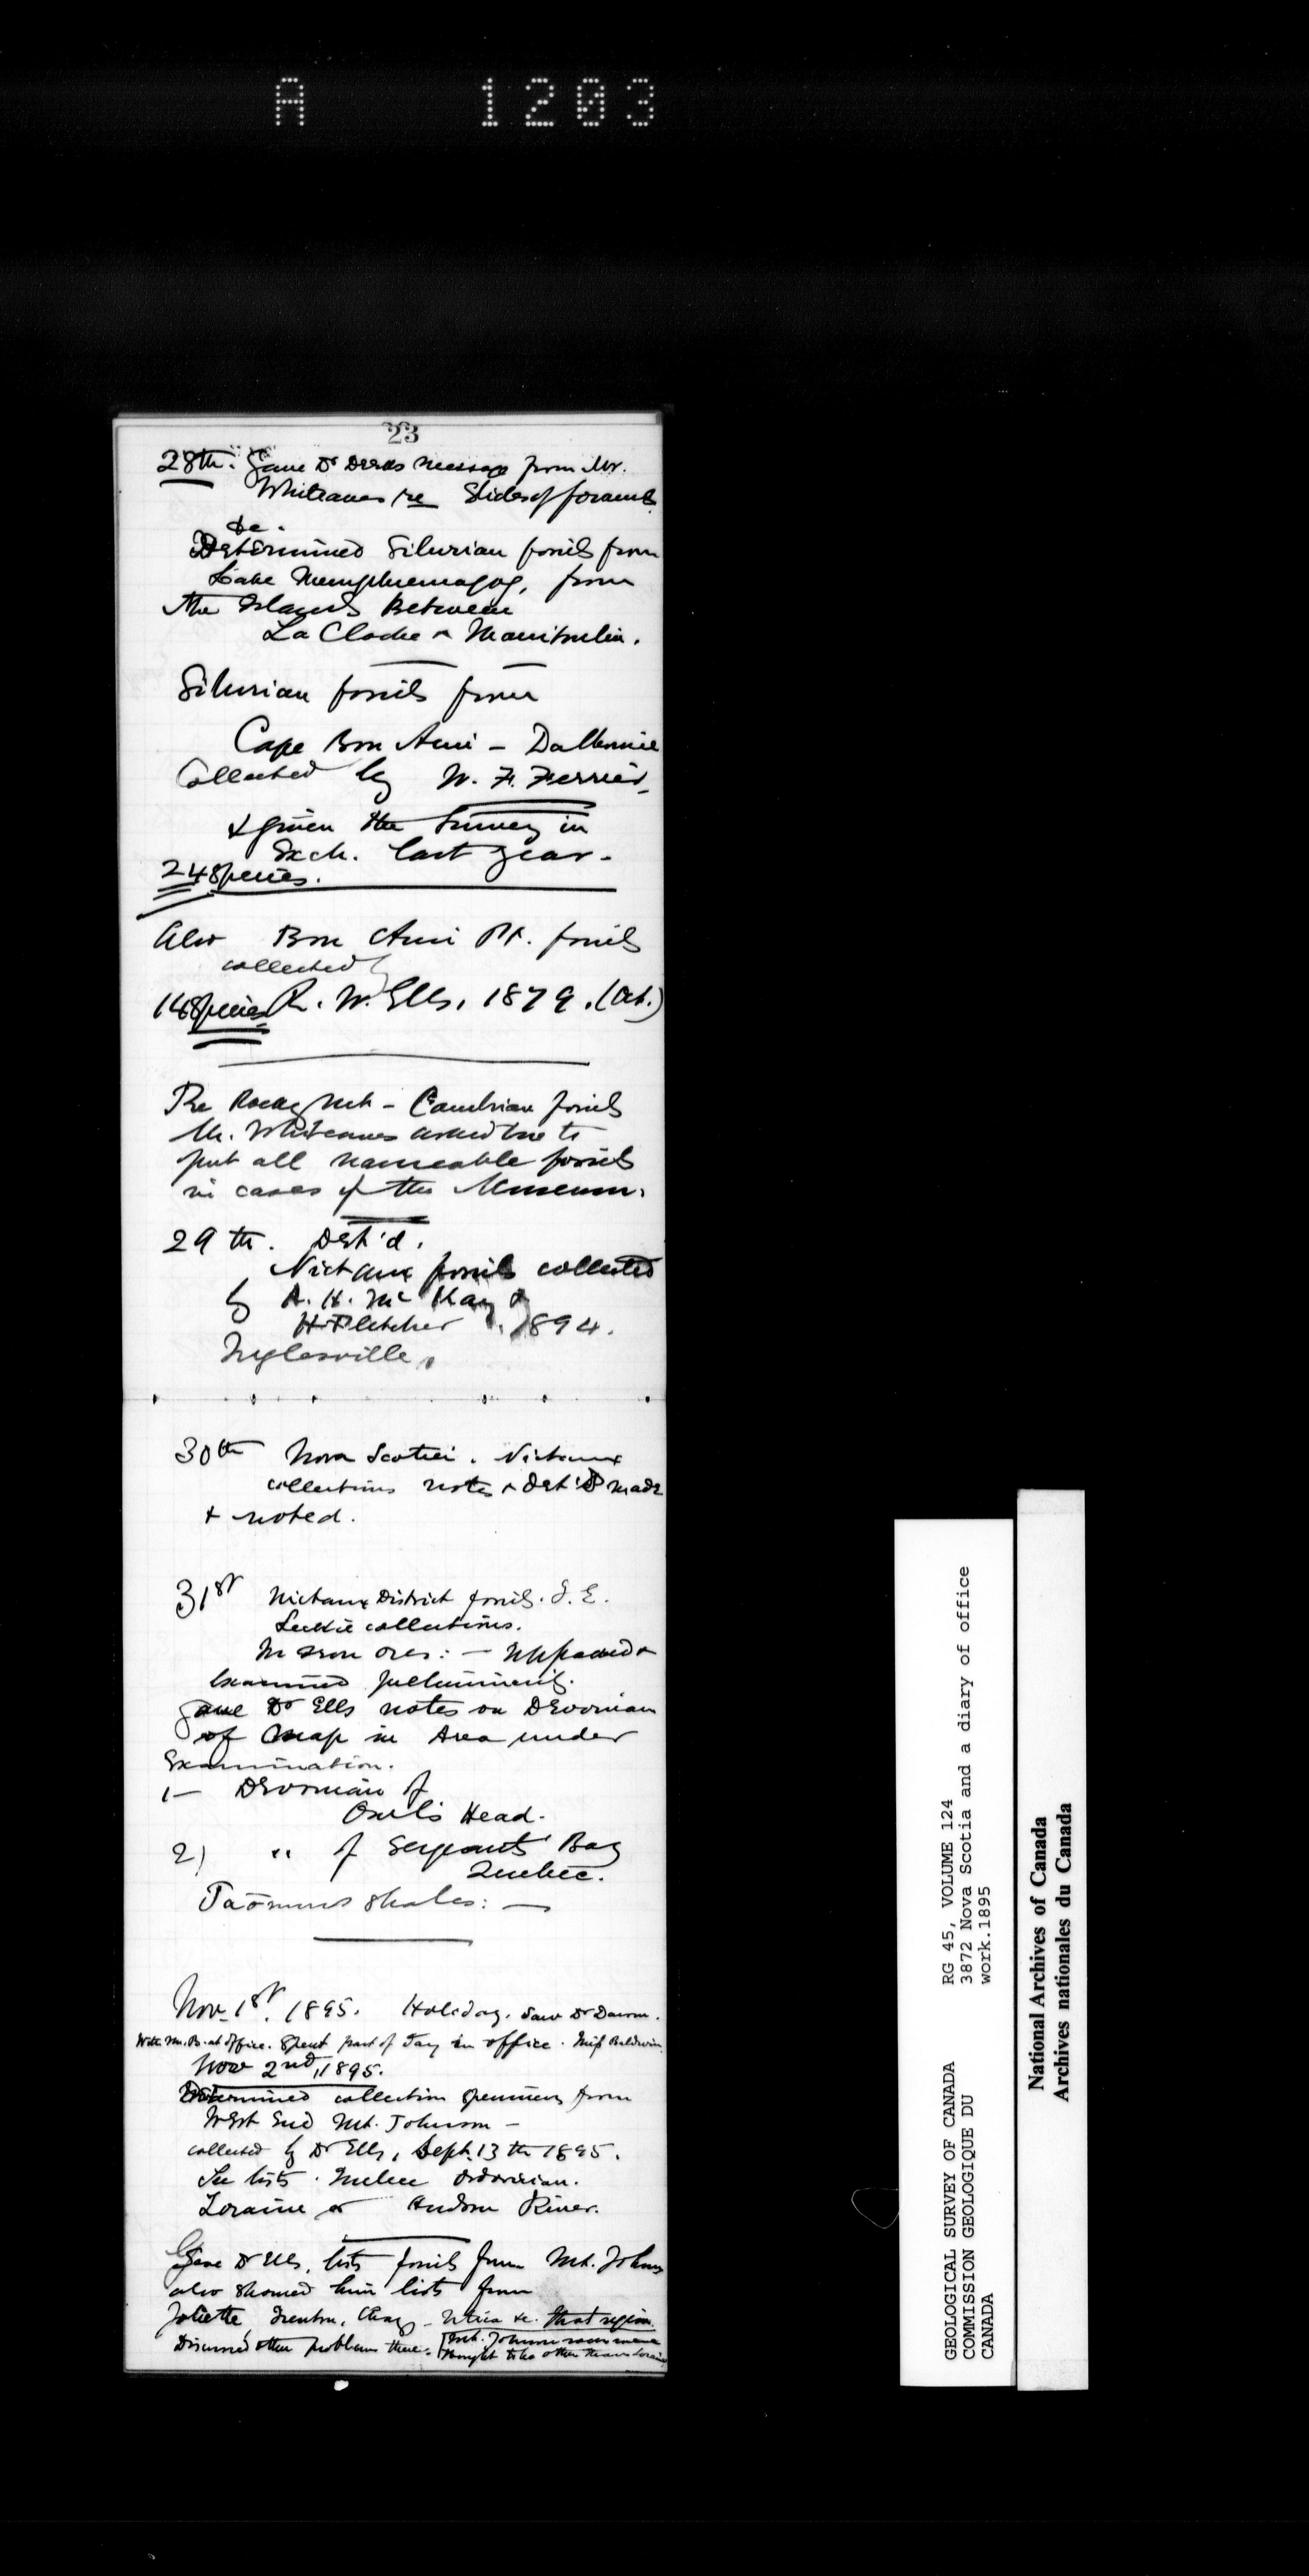 A 1203
23
28th. Gave Dr message from Mr.
Whiteaves re Slides of forams
&c.
Determined Silurian fossils from
Lake Memphremagog, from
the Islands Between
La Cloche & Manitoulin.
Silurian fossils from
Cape Bon Ami - Dalhousie
Collected by W. F. Ferrier,
& given the Survey in
Exch. last year.
24 Species.
Also Bon Ami Pt. fossils
collected by
14 Species R. W. Ells, 1879. (Oct.)
Re Rocky Mt - Cambrian fossils
Mr. Whiteaves asked me to
put all nameable fossils
in cases of the Museum.
29th. Det'd.
Nictaux fossils collected
by A. H. McKay &
H. Fletcher. 1894.
Inglesville,
30th Nova Scotia. Nictaux
collections notes & Det'd made
& noted.
31st Nictaux District fossils. J. E.
Leckie collections.
In Iron ores: - Unpacked &
Examined
Gave Dr Ells notes on Devonian
of Map in Area under
Examination.
1- Devonian of
Owl's Head.
2) " of Sergeants Bay
Quebec.
shales: -
Nov. 1st, 1895. Holiday. Saw Dr Dawson.
With Mr. B. at office. Spent part of day in office. Miss Baldwin
Nov 2nd, 1895.
Determined collection specimens from
West End Mt. Johnson -
collected by Dr Ells, Sept. 13th 1895.
See lists. Quebec Ordovician.
Loraine or Hudson River.
Gave Dr Ells, lists fossils from Mt. Johnson
also showed him lists from
Joliette, Trenton, Chazy - Utica &c. that region.
Discussed other problems there. [Mt. Johnson
nought to be other than Loraine
GEOLOGICAL SURVEY OF CANADA
COMMISSION GEOLOGIQUE DU
CANADA
RG 45, VOLUME 124
3872 Nova Scotia and a diary of office
work.1895
National Archives of Canada
Archives nationales du Canada